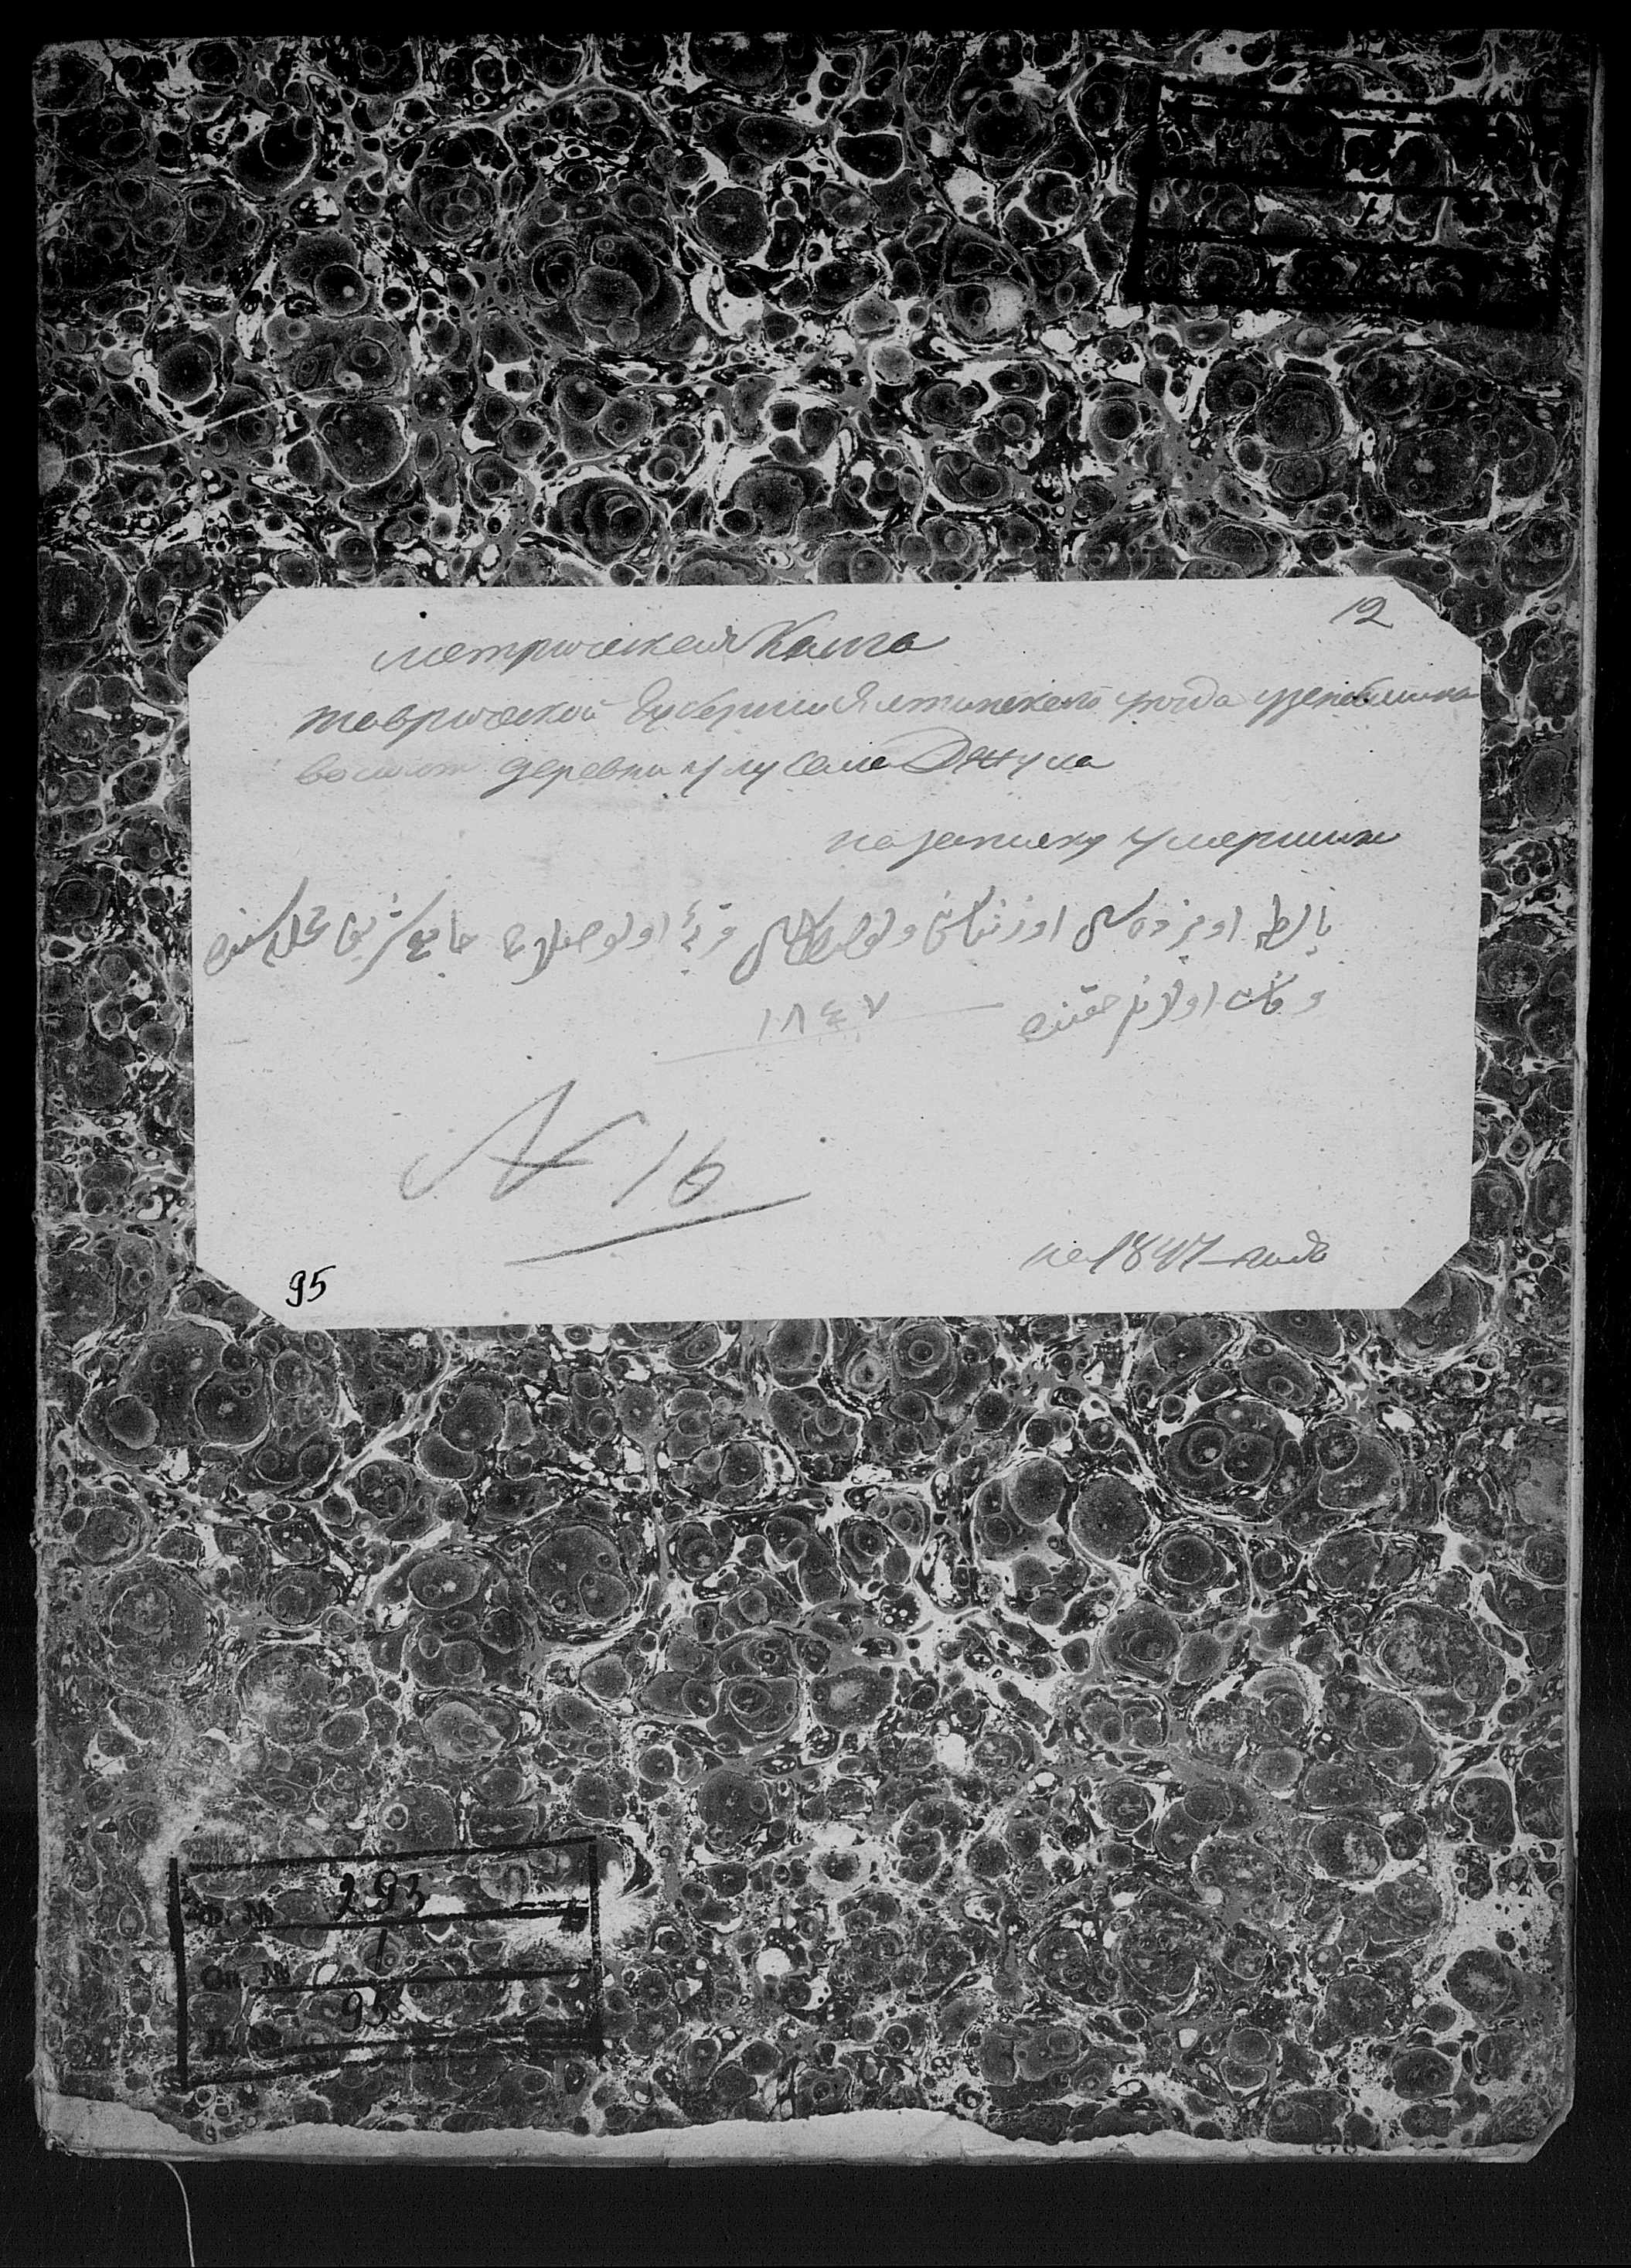 12
метрическая Книга
таврической Губернии Ялтинского уезда узенбашско
волост деревни улу сала Джума
на записку умерших
يالطه اويزدەسى اوزنباش ولوصى قريۀ اولوصلا جامع شريف محله‌سنده
وفات اولانلر حقنده ١٨٤٧
№ 16
на 1847 годъ
95
Ф. № 293
Оп. № 1
Д. № 95